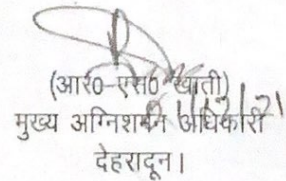 (आर०-एस० खाती)
मुख्य अग्निशमन अधिकारी
देहरादून।